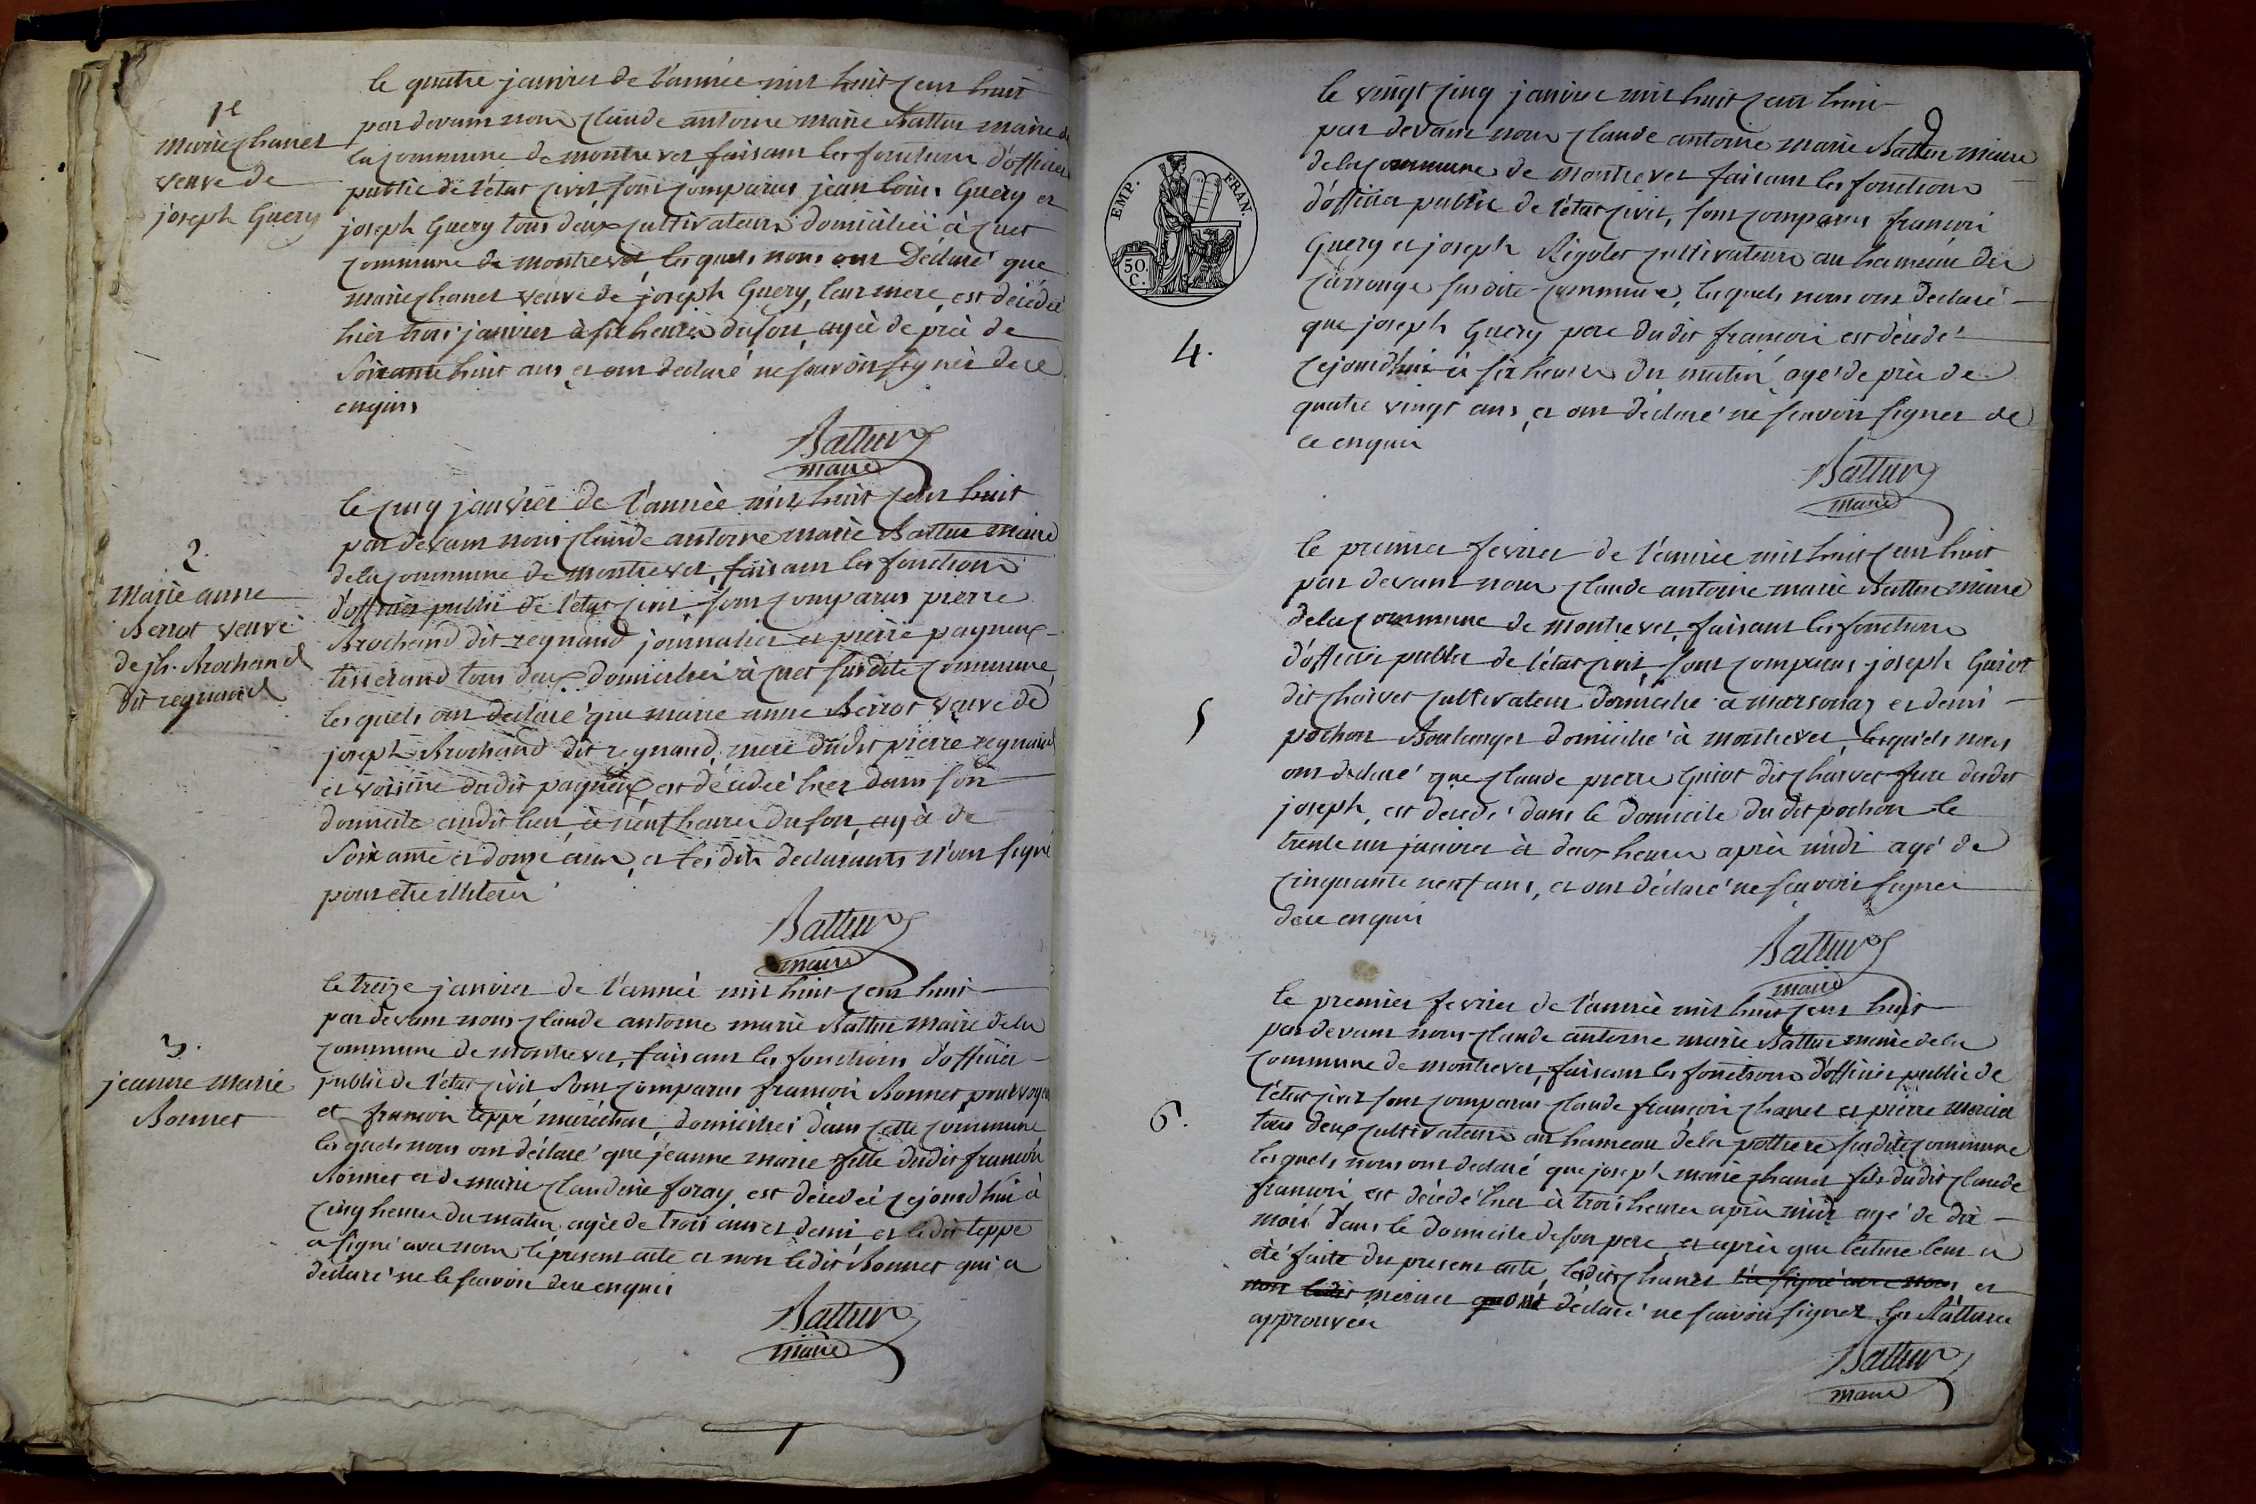 1e
marie chanel
veuve de
joseph Guery
le quatre janvier de l'année mil huit cent huit
par devant nous claude antoine marie Battur maire de
la commune de montrevel faisant les fonctions d'officier
public de l'état civil sont comparus jean louis Guery et
joseph Guery tous deux cultivateurs domiciliés à cuet
commune de montrevel, les quels nous ont déclaré que
marie chanel veuve de joseph Guery, leur mere, est décédée
hier trois janvier à six heures du soir, agée de près de
soixante huit ans, et ont declaré ne sçavoir signer de ce
enquis
Battur
maire
2.
marie anne
Berrot veuve
de jh. Brochand
dit regnand
le cinq janvier de l'année mil huit cent huit
par devant nous claude antoine marie Battur maire
de la commune de montrevel, faisant les fonctions
d'officier public de l'état civil, sont comparus pierre
Brochand dit regnand journalier et pierre pagneux
tisserand tous deux domiciliés à cuet susdite commune,
les quels ont declaré que marie anne Berrot veuve de
joseph Brochand dit regnand, mere dudit pierre regnand
et voisine dudit pagneux est décédée hier dans son
domicile audit lieu, à neuf heures du soir, agée de
soixante et douze ans, et lesdits declarants n'ont signé
pour etre illiterés
Battur
maire
3.
jeanne marie
Bonnet
le treize janvier de l'année mil huit cent huit
par devant nous claude antoine marie Battur maire de la
commune de montrevel, faisant les fonctions d'officier
public de l'état civil sont comparus françois Bonnet
et françois teppe maréchal, domiciliés dans cette commune
les quels nous ont déclaré que jeanne marie fille dudit françois
Bonnet et de marie claudine foray, est décédée cejourd'hui à
cinq heures du matin, agée de trois ans et demi, et ledit teppe
a signé avec nous le present acte et non ledit Bonnet qui a
declaré ne le sçavoir de ce enquis
Battur
maire
EMP. FRAN.
50.
C.
4.
le vingt cinq janvier mil huit cent huit
par devant nous claude antoine marie Battur maire
de la commune de montrevel faisant les fonctions
d'officier public de l'état civil, sont comparus françois
Guery et joseph Rigolet cultivateurs au hameau du
carrouge susdite commune, lesquels nous ont declaré
que joseph Guery pere dudit françois est décédé
cejourd'hui à six heures du matin, agé de près de
quatre vingt ans, et ont declaré ne sçavoir signer de
ce enquis
Battur
maire
5
le premier fevrier de l'année mil huit cent huit
par devant nous claude antoine marie Battur maire
de la commune de montrevel, faisant les fonctions
d'officier public de l'état civil, sont comparus joseph Guiot
dit charvet cultivateur domicilié a marsonas et denis
pochon Boulanger domicilié à montrevel, lesquels nous
ont declaré que claude pierre Guiot dit charvet frere dudit
joseph, est decedé dans le domicile dudit pochon le
trente un janvier à deux heures après midi agé de
cinquante neuf ans, et ont déclaré ne sçavoir signer
de ce enquis
Battur
maire
6.
le premier fevrier de l'année mil huit cent huit
par devant nous claude antoine marie Battur maire de la
commune de montrevel, faisant les fonctions d'officier public de
l'état civil sont comparus claude françois chanel et pierre morier
tous deux cultivateurs au hameau de la pottiere susdite commune
lesquels nous ont declaré que joseph marie chanel fils dudit claude
françois, est décédé hier à trois heures après midi agé de dix
mois dans le domicile de son pere, et après que lecture leur a
été faite du present acte, lesdits chanel l'a signé avec nous, et
non ledit morier ont déclaré ne sçavoir signer les Ratures
approuvées
Battur
maire